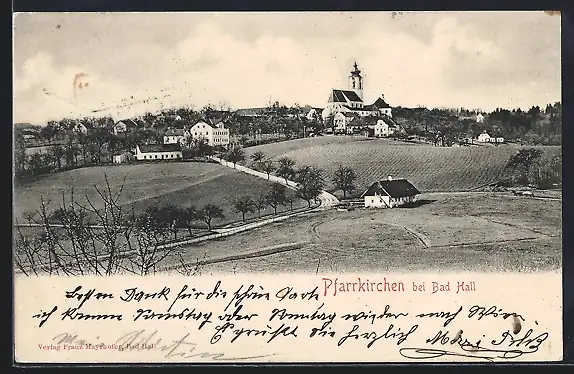 Pfarrkirchen bei Bad Hall
Besten Dank für die schöne Carte
ich komme Samstag oder Sonntag wieder nach Wien
Es grüsst die herzlich
Verlag Franz Mayrhofer, Bad Hall